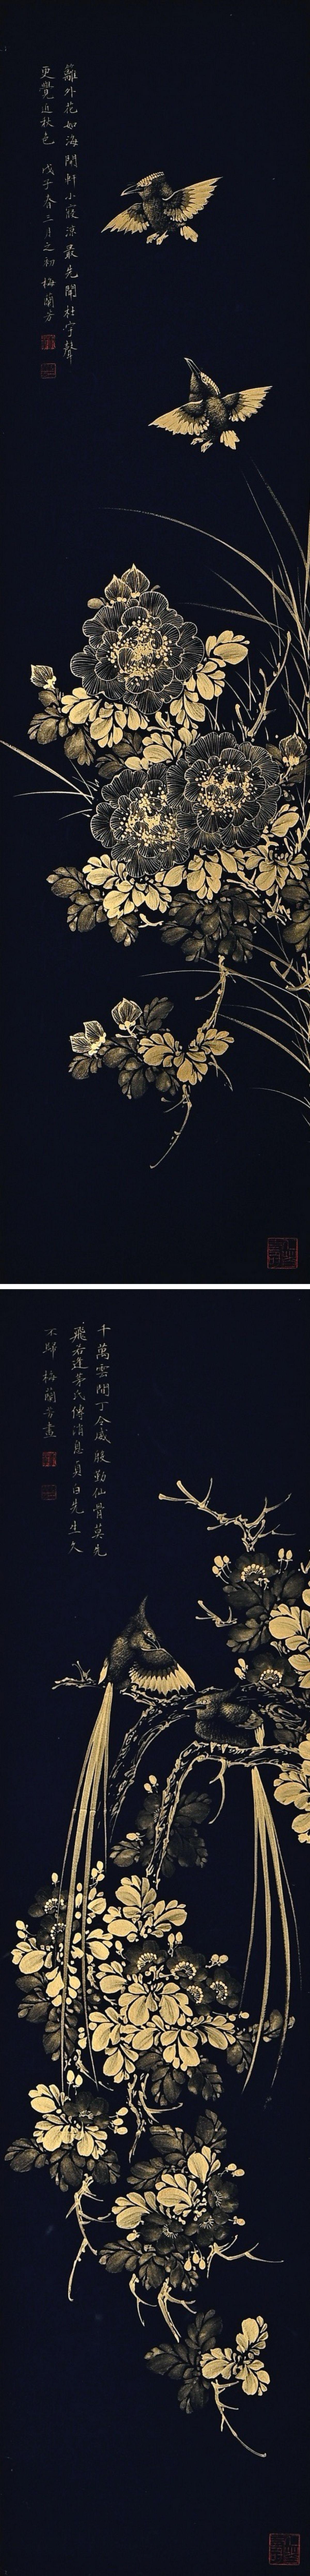 籬外花如海開軒小寢涼最先聞杜宇聲
更覺近秋色　戊子春三月之初　梅蘭芳
千萬雲間丁令威殷勤仙骨莫先
飛若逢茅氏傳消息貞白先生久
不歸　梅蘭芳畫